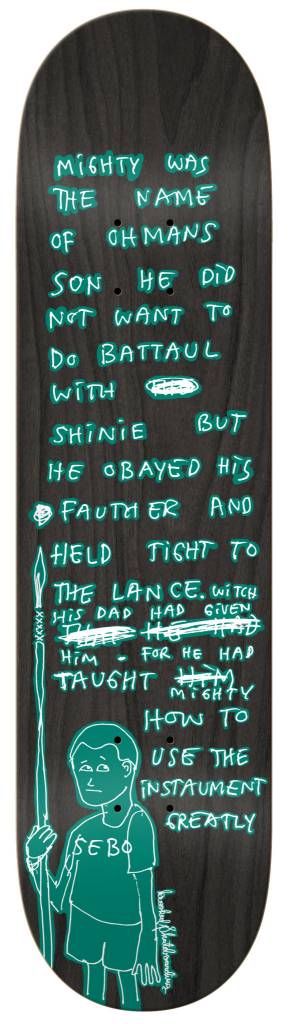 MIGHTY WAS
THE NAME
OF OHMANS
SON HE DID
NOT WANT TO
DO BATTAUL
WITH
SHINIE BUT
HE OBAYED HIS
FAUTHER AND
HELD TIGHT TO
THE LANCE. WITCH
HIS DAD HAD GIVEN
THAT HE HAD
HIM - FOR HE HAD
TAUGHT HIM
MIGHTY
HOW TO
USE THE
INSTAUMENT
GREATLY
SEBO
Krooked Skateboarding